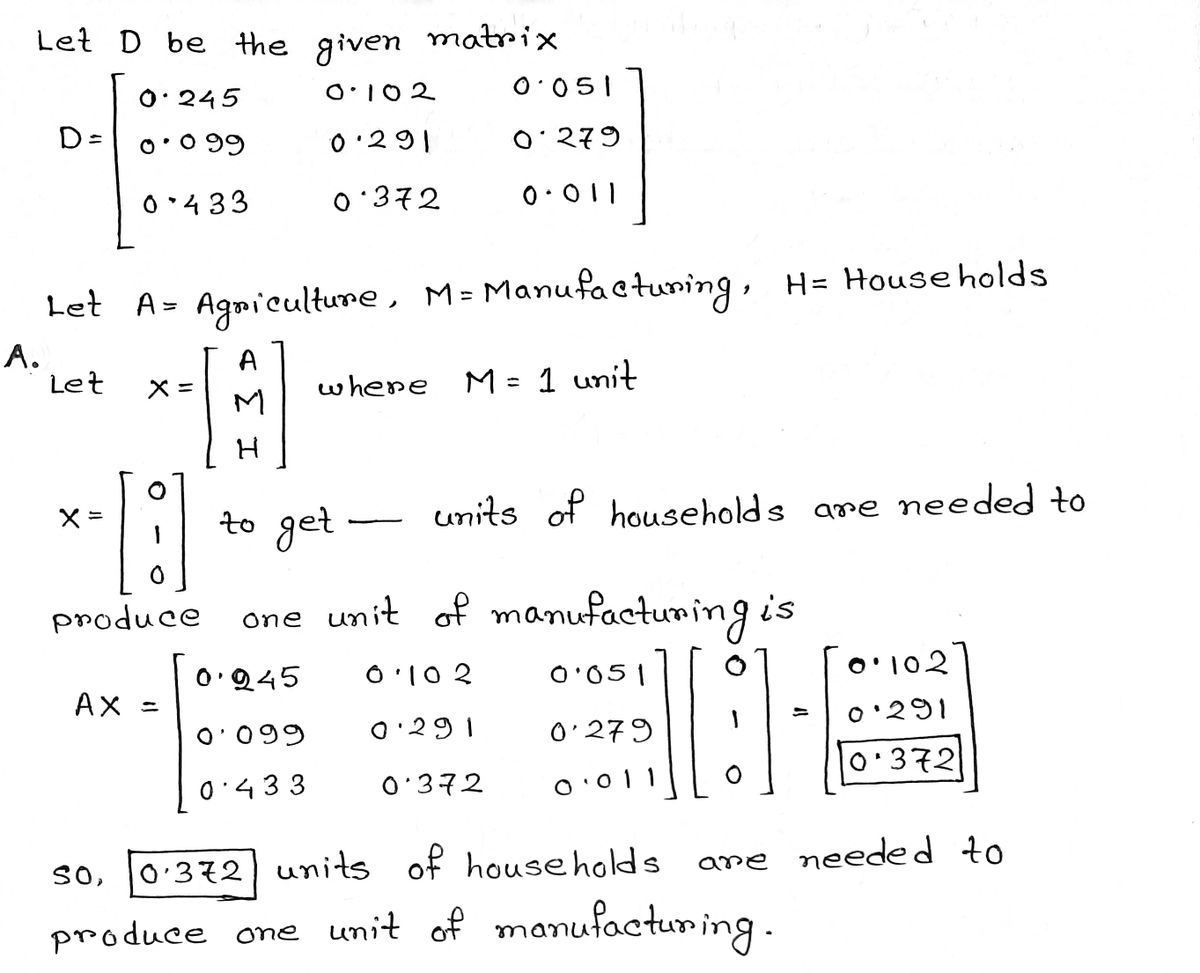 Let D be the given matrix
D = [ 0.245 0.102 0.051
0.099 0.291 0.279
0.433 0.372 0.011 ]
Let A = Agriculture, M = Manufacturing, H = Households
A.
Let X = [ A
M
H ] where M = 1 unit
X = [ 0
1
0 ] to get — units of households are needed to
produce one unit of manufacturing is
AX = [ 0.245 0.102 0.051
0.099 0.291 0.279
0.433 0.372 0.011 ] [ 0
1
0 ] = [ 0.102
0.291
0.372 ]
so, 0.372 units of households are needed to
produce one unit of manufacturing.